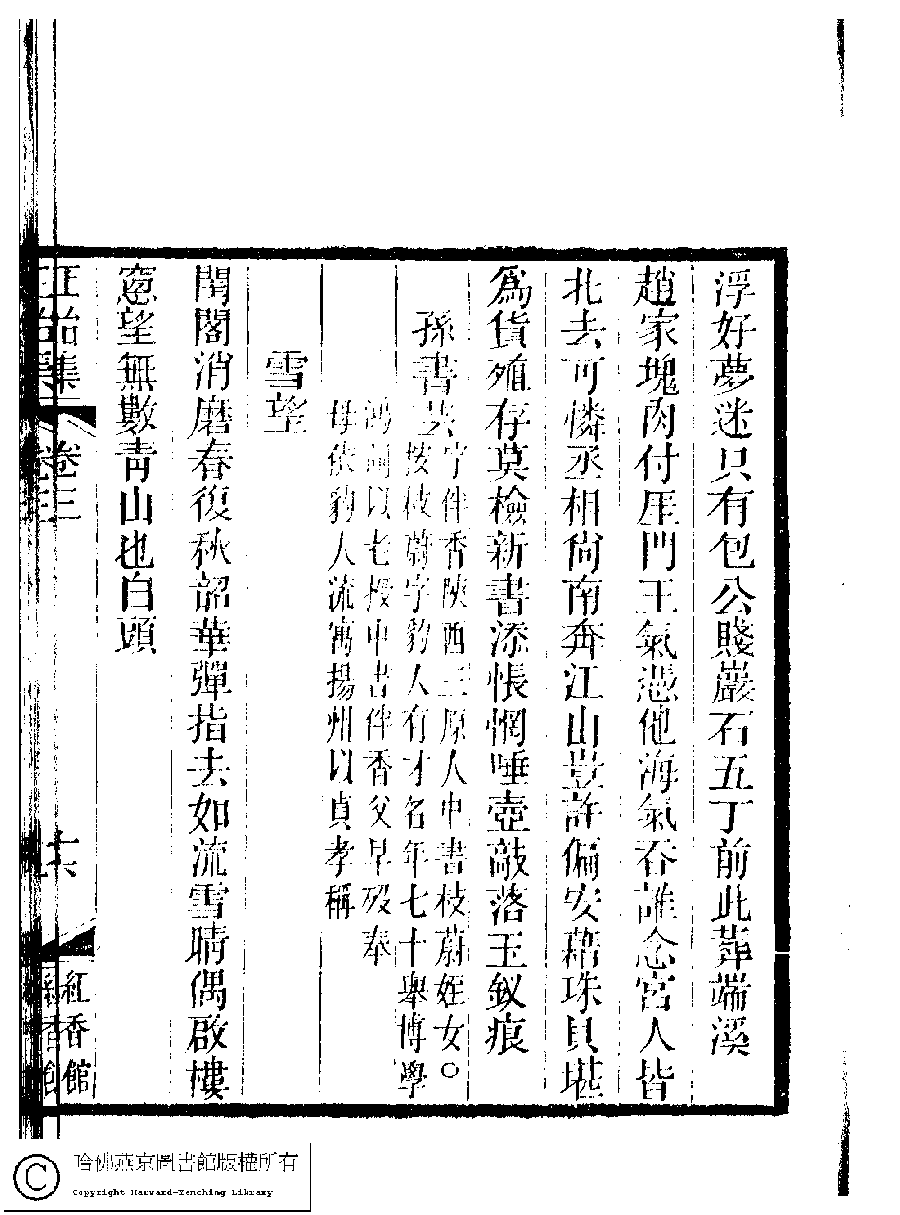 浮好夢迷只有包公賤巖石五丁前此葬端溪
趙家塊肉付厓門王氣慿他海氣吞誰念宮人皆
北去可憐丞相尙南奔江山豈許偏安藉珠貝堪
爲貨殖存莫檢新書添悵惘唾壺敲落玉釵痕
孫書
字伴香陝西三原人中書枝蔚姪女○
按枝蔚字豹人有才名年七十舉博學
鴻詞以老授中書伴香父早歿奉
母依豹人流寓揚州以貞孝稱
雪望
閨閣消磨春復秋韶華彈指去如流雪晴偶啟樓
窻望無數靑山也白頭
集 卷三
十六
紅香館
哈佛燕京圖書館版權所有
Copyright Harvard-Yenching Library